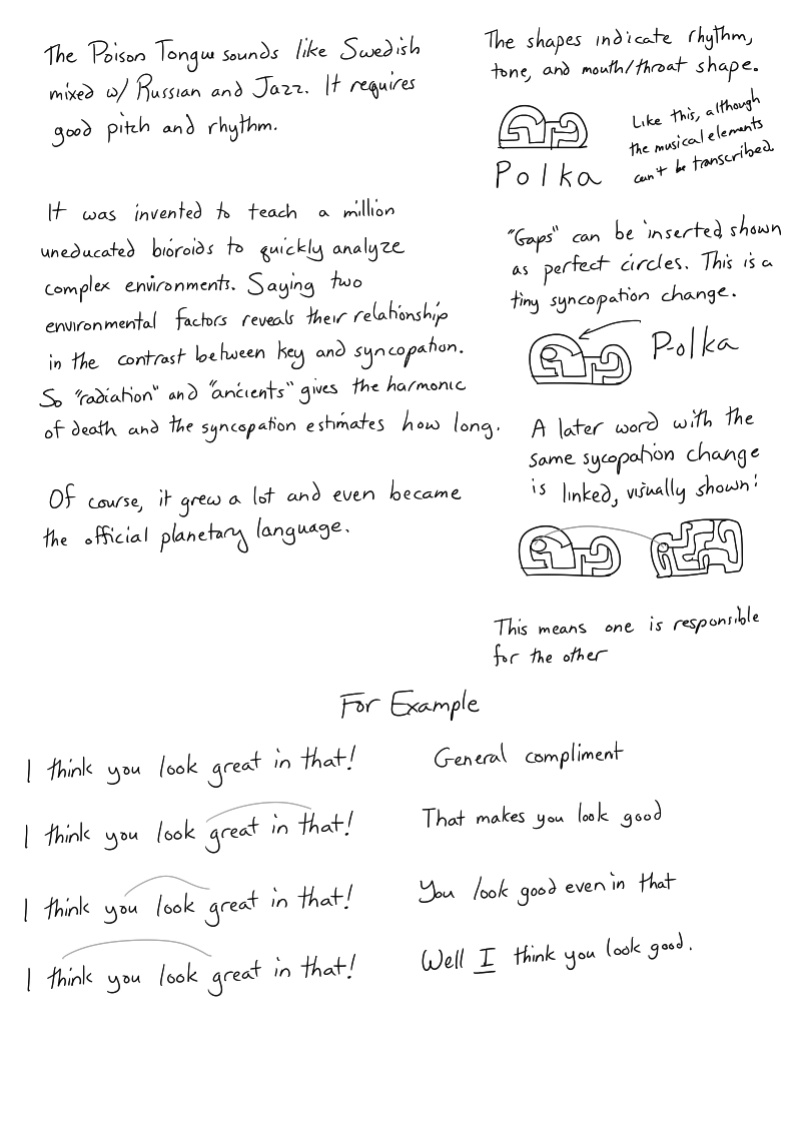 The Poison Tongue sounds like Swedish
mixed w/ Russian and Jazz. It requires
good pitch and rhythm.
It was invented to teach a million
uneducated bioroids to quickly analyze
complex environments. Saying two
environmental factors reveals their relationship
in the contrast between key and syncopation.
So "radiation" and "ancients" gives the harmonic
of death and the syncopation estimates how long.
Of course, it grew a lot and even became
the official planetary language.
The shapes indicate rhythm,
tone, and mouth/throat shape.
Like this, although
the musical elements
can't be transcribed.
Polka
"Gaps" can be inserted shown
as perfect circles. This is a
tiny syncopation change.
P-olka
A later word with the
same sycopation change
is linked, visually shown:
This means one is responsible
for the other
For Example
I think you look great in that! General compliment
I think you look great in that! That makes you look good
I think you look great in that! You look good even in that
I think you look great in that! Well I think you look good.